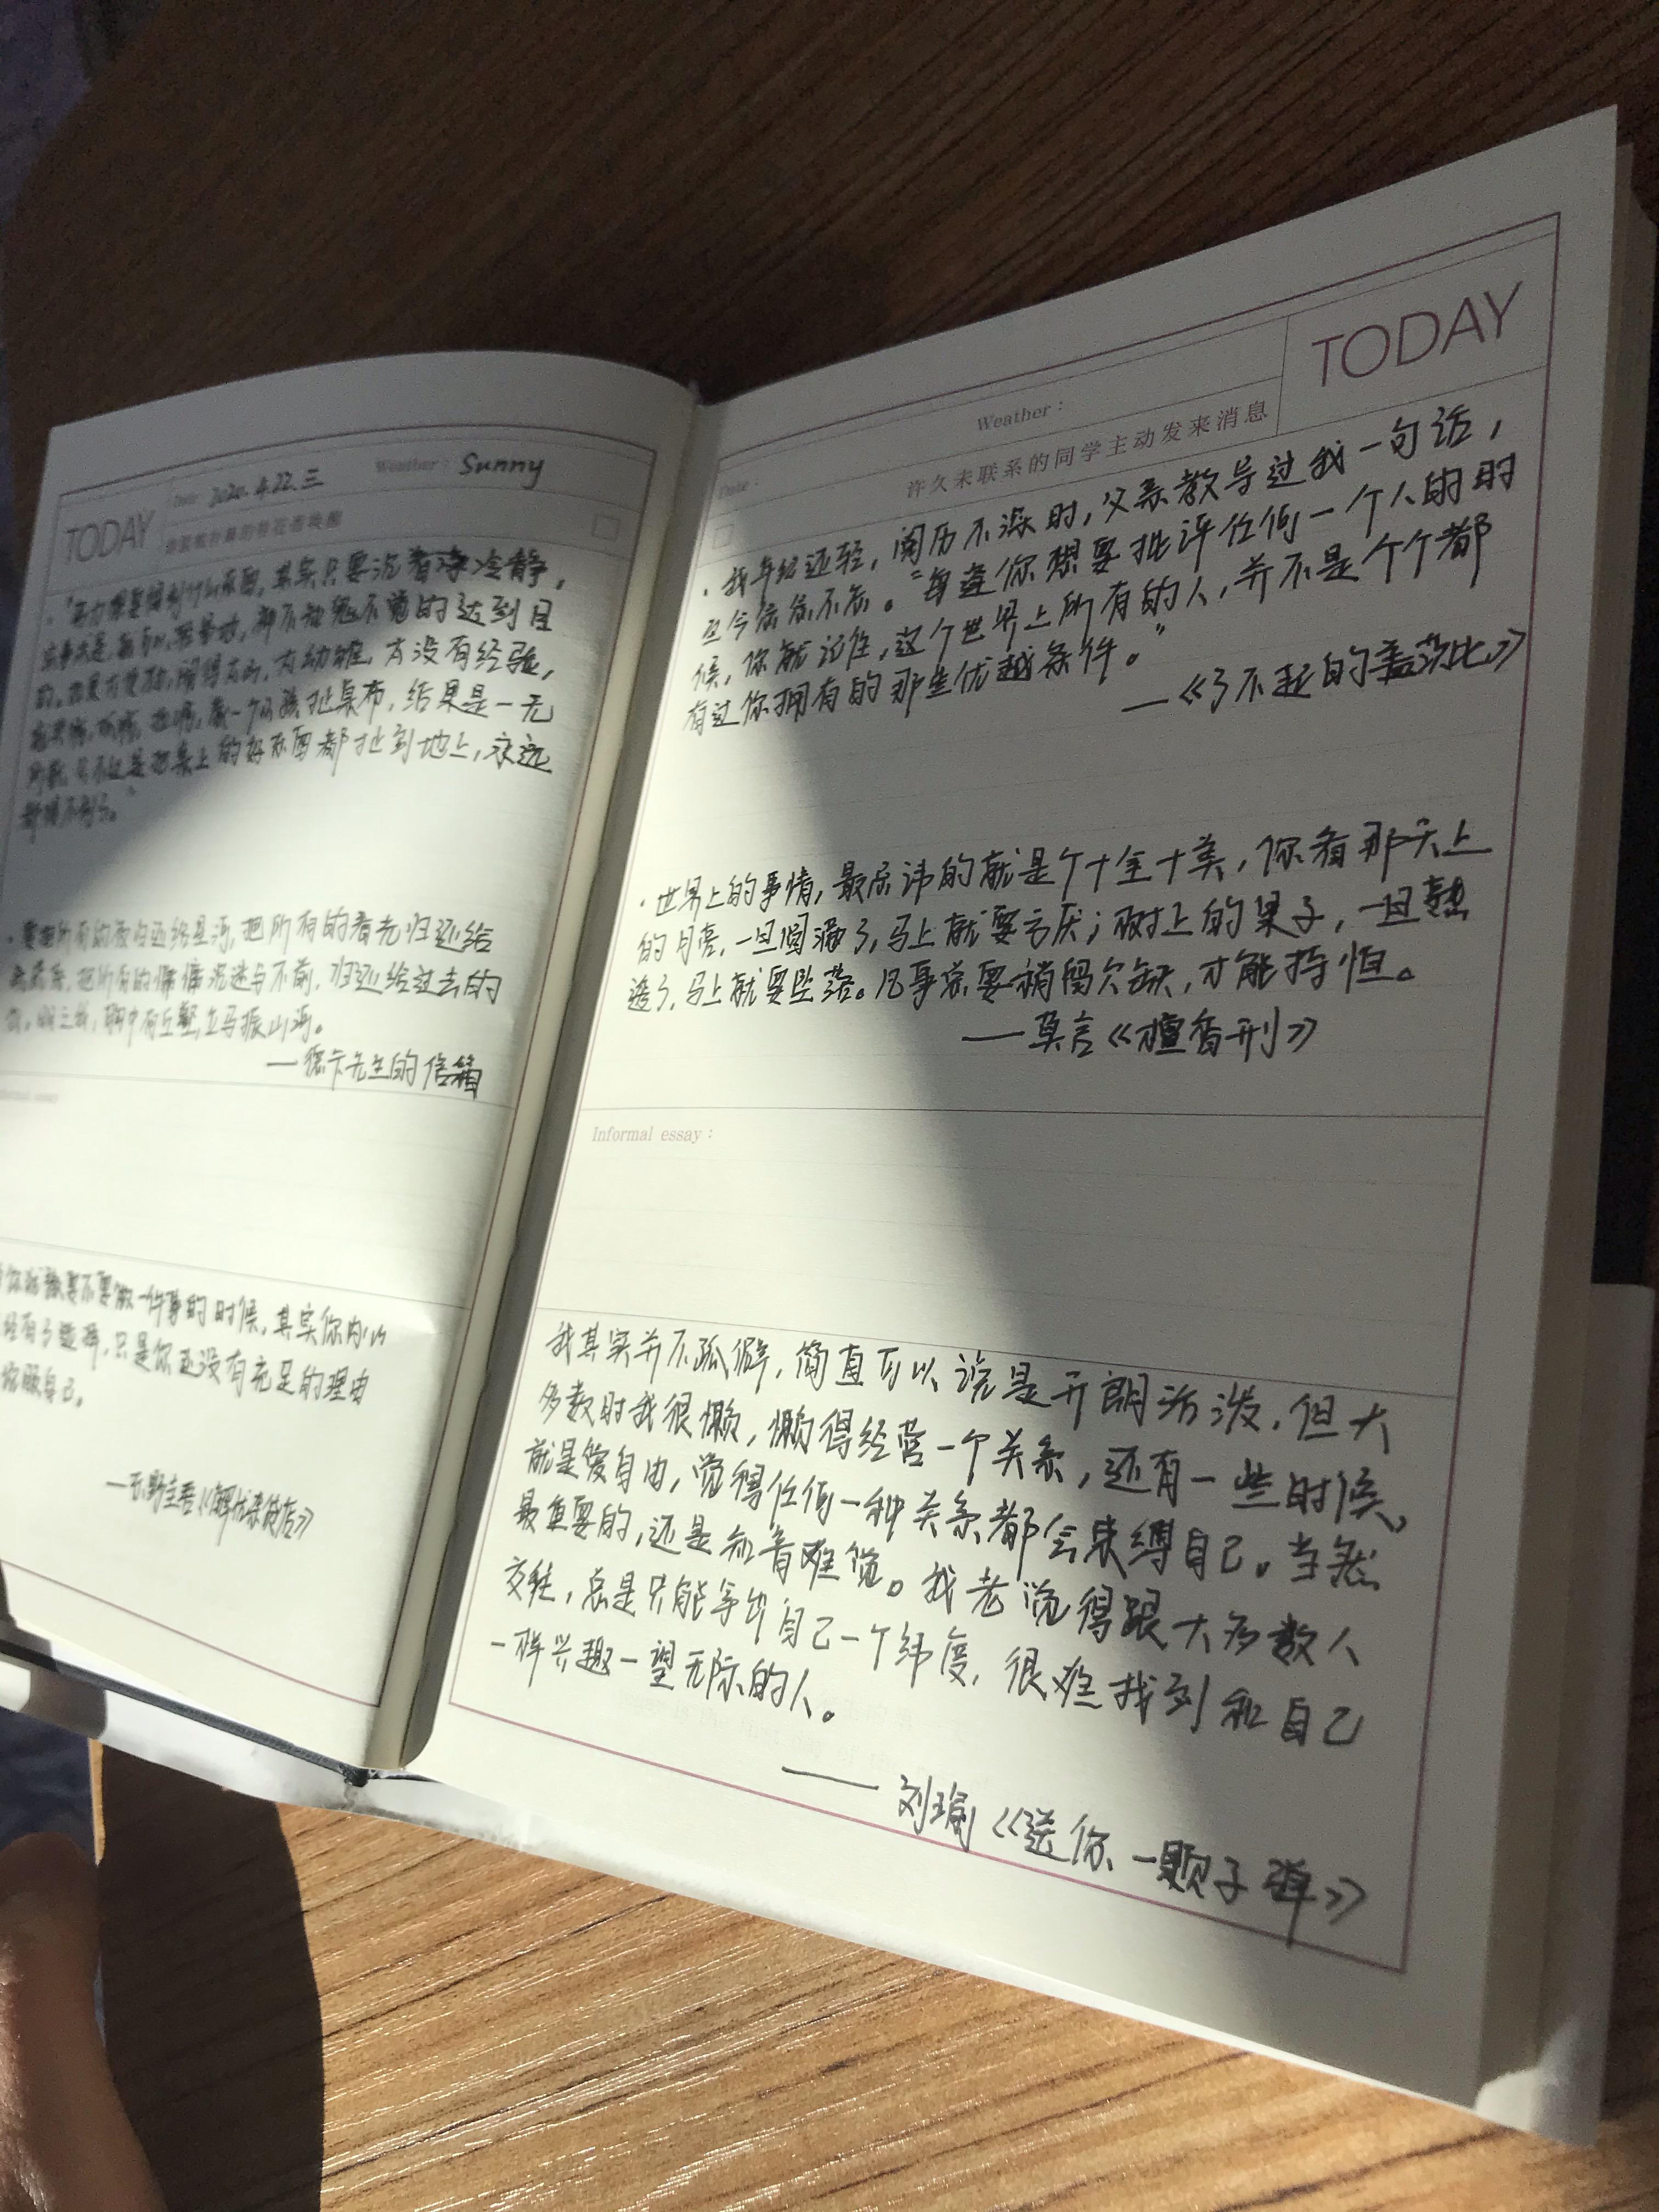 TODAY
Date 2020.4.22.三 Weather: Sunny
其实只要沉着冷静,
都不知鬼不觉的达到目
的。 有幼稚, 有没有经验,
扯桌布, 结果是一无
桌上的好东西都扯到地上, 永远
都得不到了。”
归还给星河, 把所有的春光归还给
把所有的慵慵沉迷与不前, 归还给过去的
胸中有丘壑, 立马振山河。
——德卡先生的信箱
要不要做一件事的时候, 其实你内心
只是你还没有充足的理由
说服自己。
——东野圭吾《解忧杂货店》
TODAY
Date: Weather:
许久未联系的同学主动发来消息
· 我年纪还轻, 阅历不深时, 父亲教导过我一句话,
至今念念不忘。“每逢你想要批评任何一个人的时
候, 你就记住, 这个世界上所有的人, 并不是个个都
有过你拥有的那些优越条件。”
——《了不起的盖茨比》
· 世界上的事情, 最忌讳的就是个十全十美, 你看那天上
的月亮, 一旦圆满了, 马上就要亏厌; 树上的果子, 一旦熟
透了, 马上就要坠落。凡事总要稍留欠缺, 才能持恒。
——莫言《檀香刑》
Informal essay:
我其实并不孤僻, 简直可以说是开朗活泼, 但大
多数时我很懒, 懒得经营一个关系, 还有一些时候,
就是爱自由, 觉得任何一种关系都会束缚自己。当然
最重要的, 还是知音难觅。我老觉得跟大多数人
交往, 总是只能等出自己一个纬度, 很难找到和自己
一样兴趣一望无际的人。
——刘瑜《送你一颗子弹》